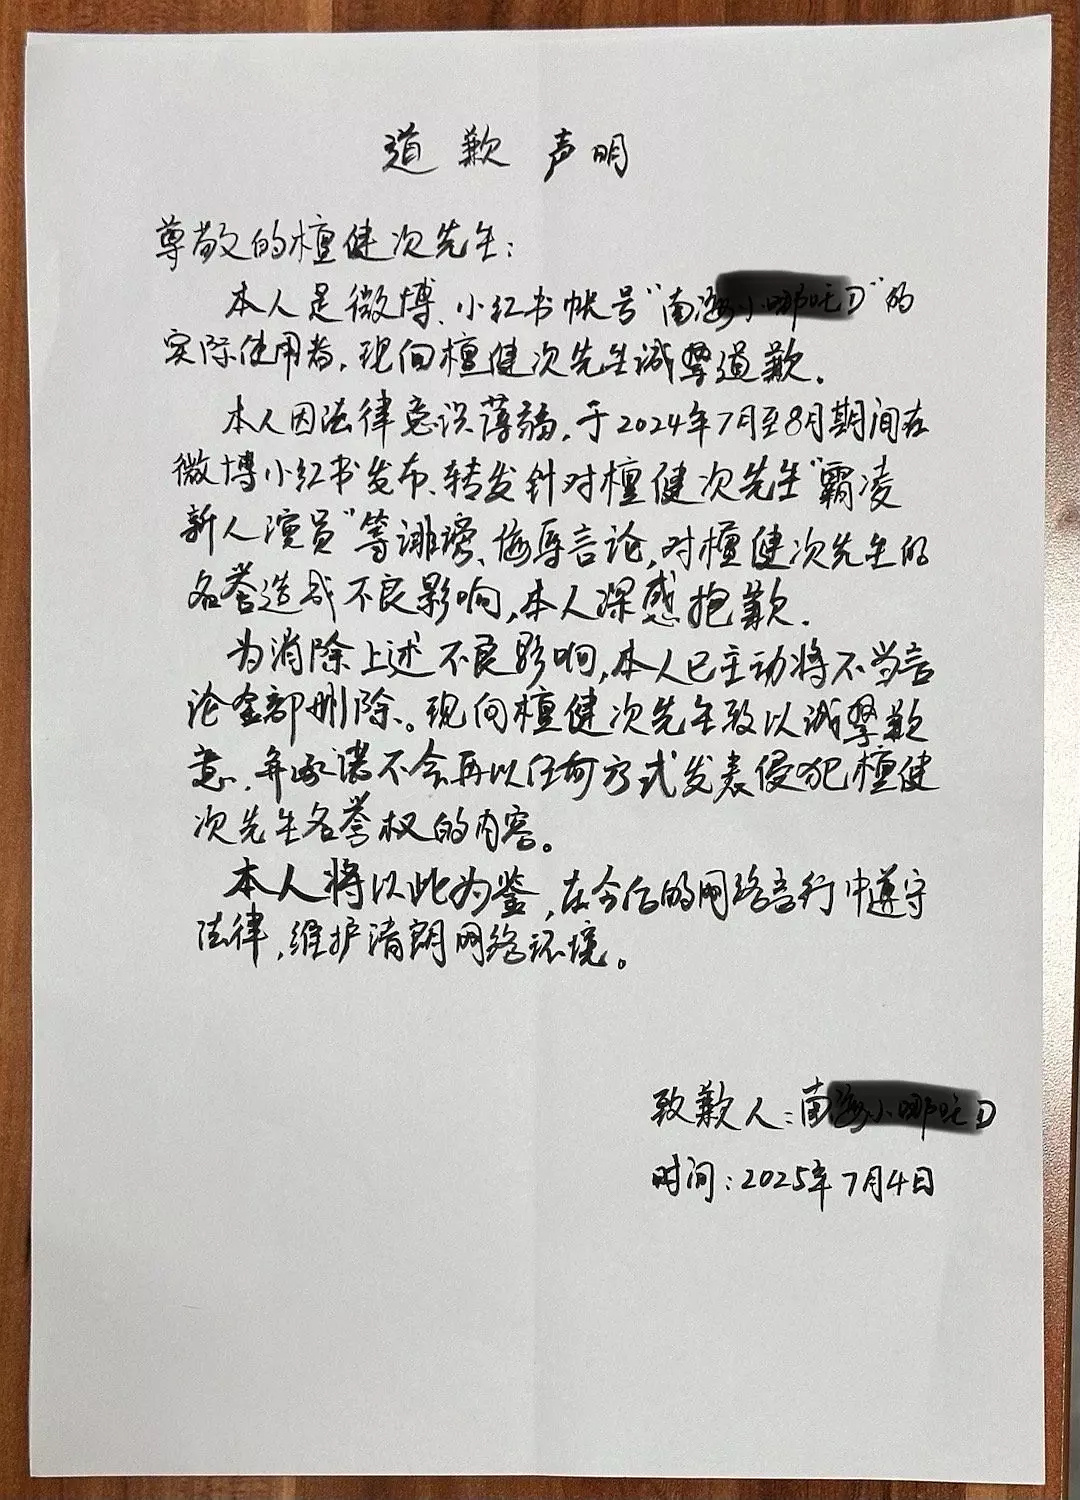 道歉声明
尊敬的檀健次先生：
本人是微博、小红书帐号“南 的
实际使用者，现向檀健次先生诚挚道歉。
本人因法律意识薄弱，于2024年7月至8月期间在
微博小红书发布、转发针对檀健次先生“霸凌
新人演员”等诽谤、侮辱言论，对檀健次先生的
名誉造成不良影响，本人深感抱歉．
为消除上述不良影响，本人已主动将不当言
论全部删除、。现向檀健次先生致以诚挚歉
意，并承诺不会再以任何方式发表侵犯檀健
次先生名誉权的内容。
本人将以此为鉴，在今后的网络言行中遵守
法律，维护清朗网络环境。
致歉人：南
时间：2025年7月4日